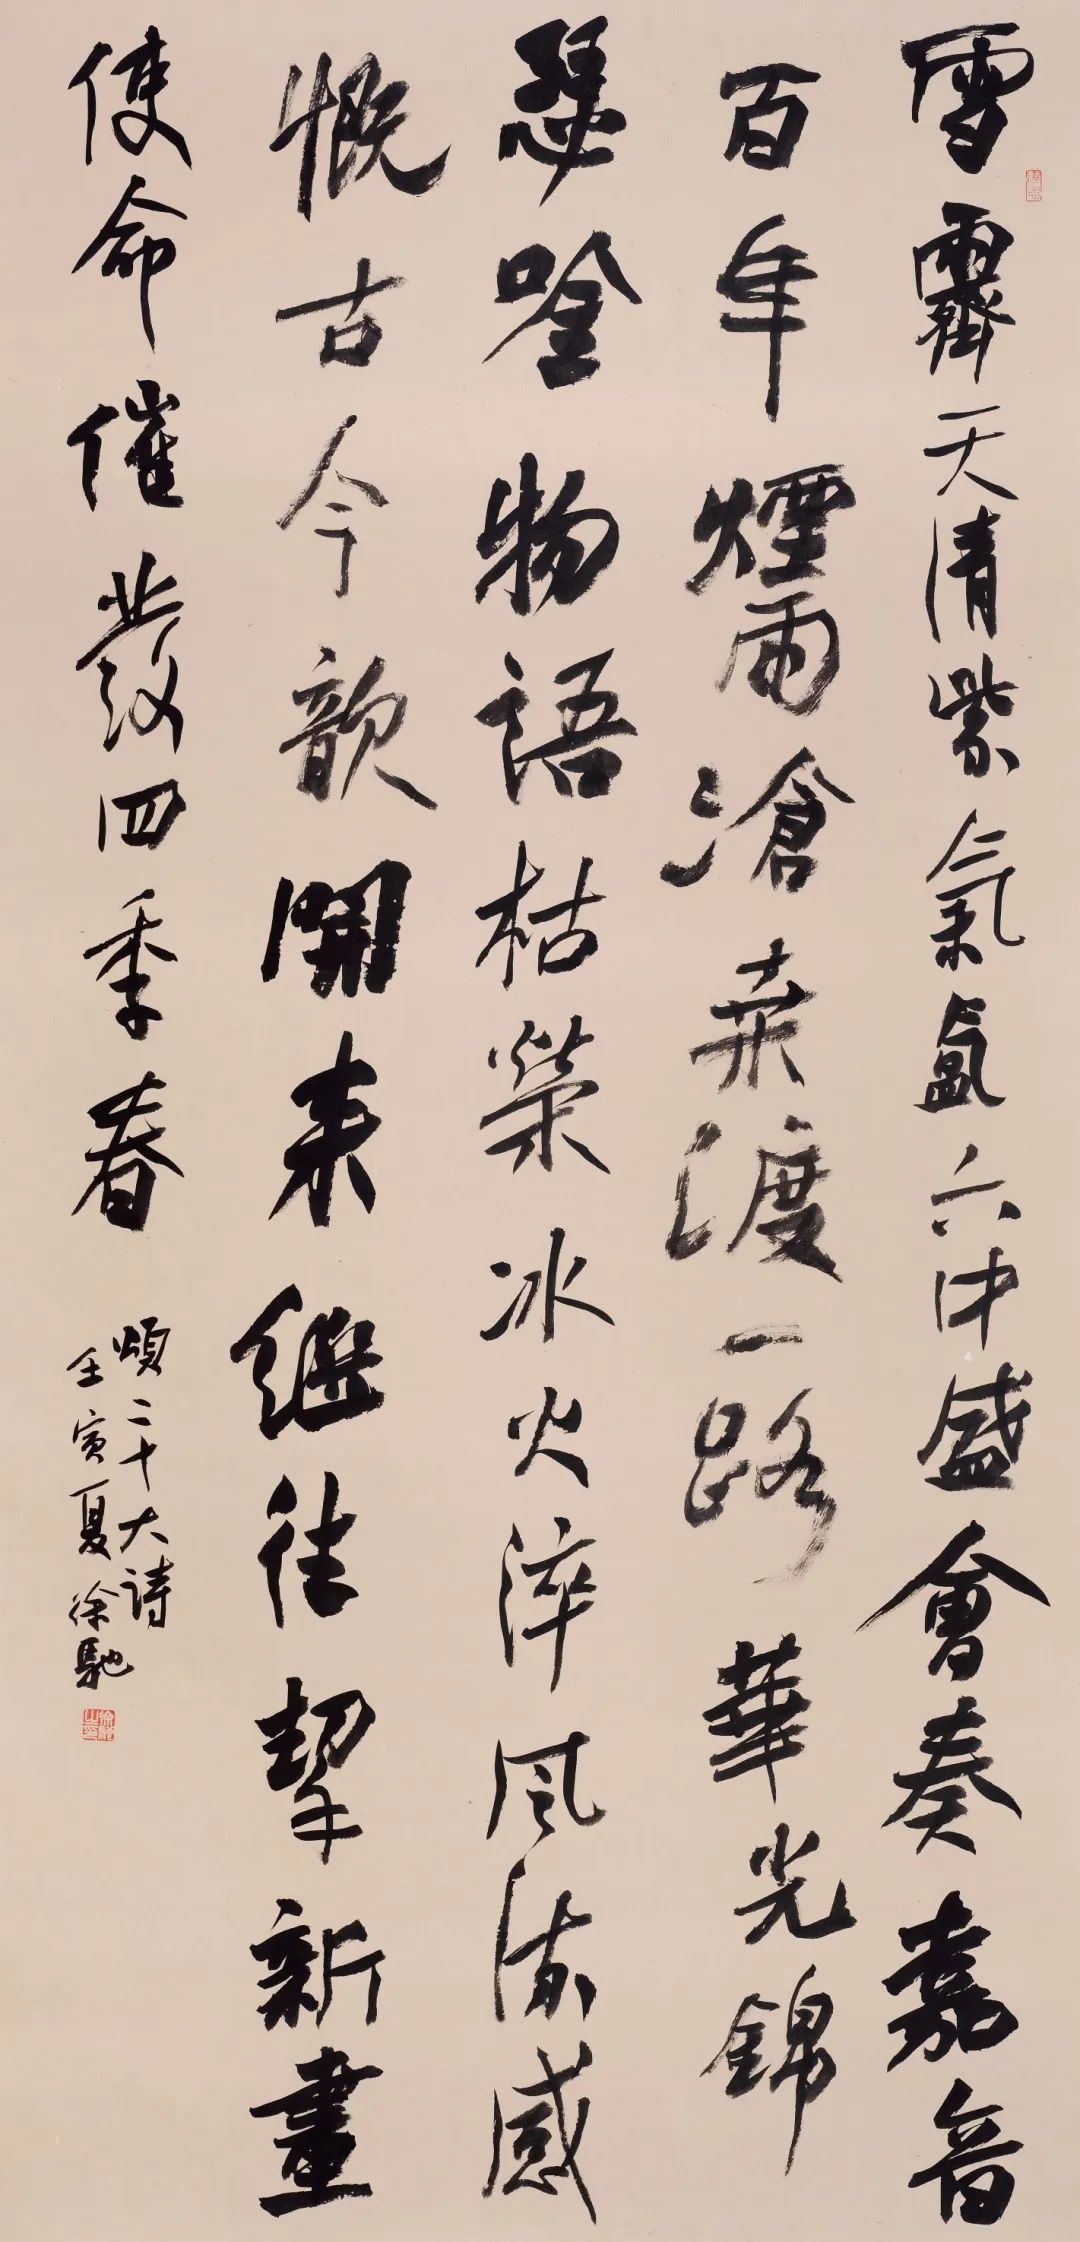 雪霽天清紫氣氳六中盛會奏嘉音
百年煙雨滄桒渡一路華光錦
瑟吟物語枯榮冰火淬風流感
慨古今歌開來繼往挈新畫
使命催發四季春
頌二十大詩
壬寅夏徐馳